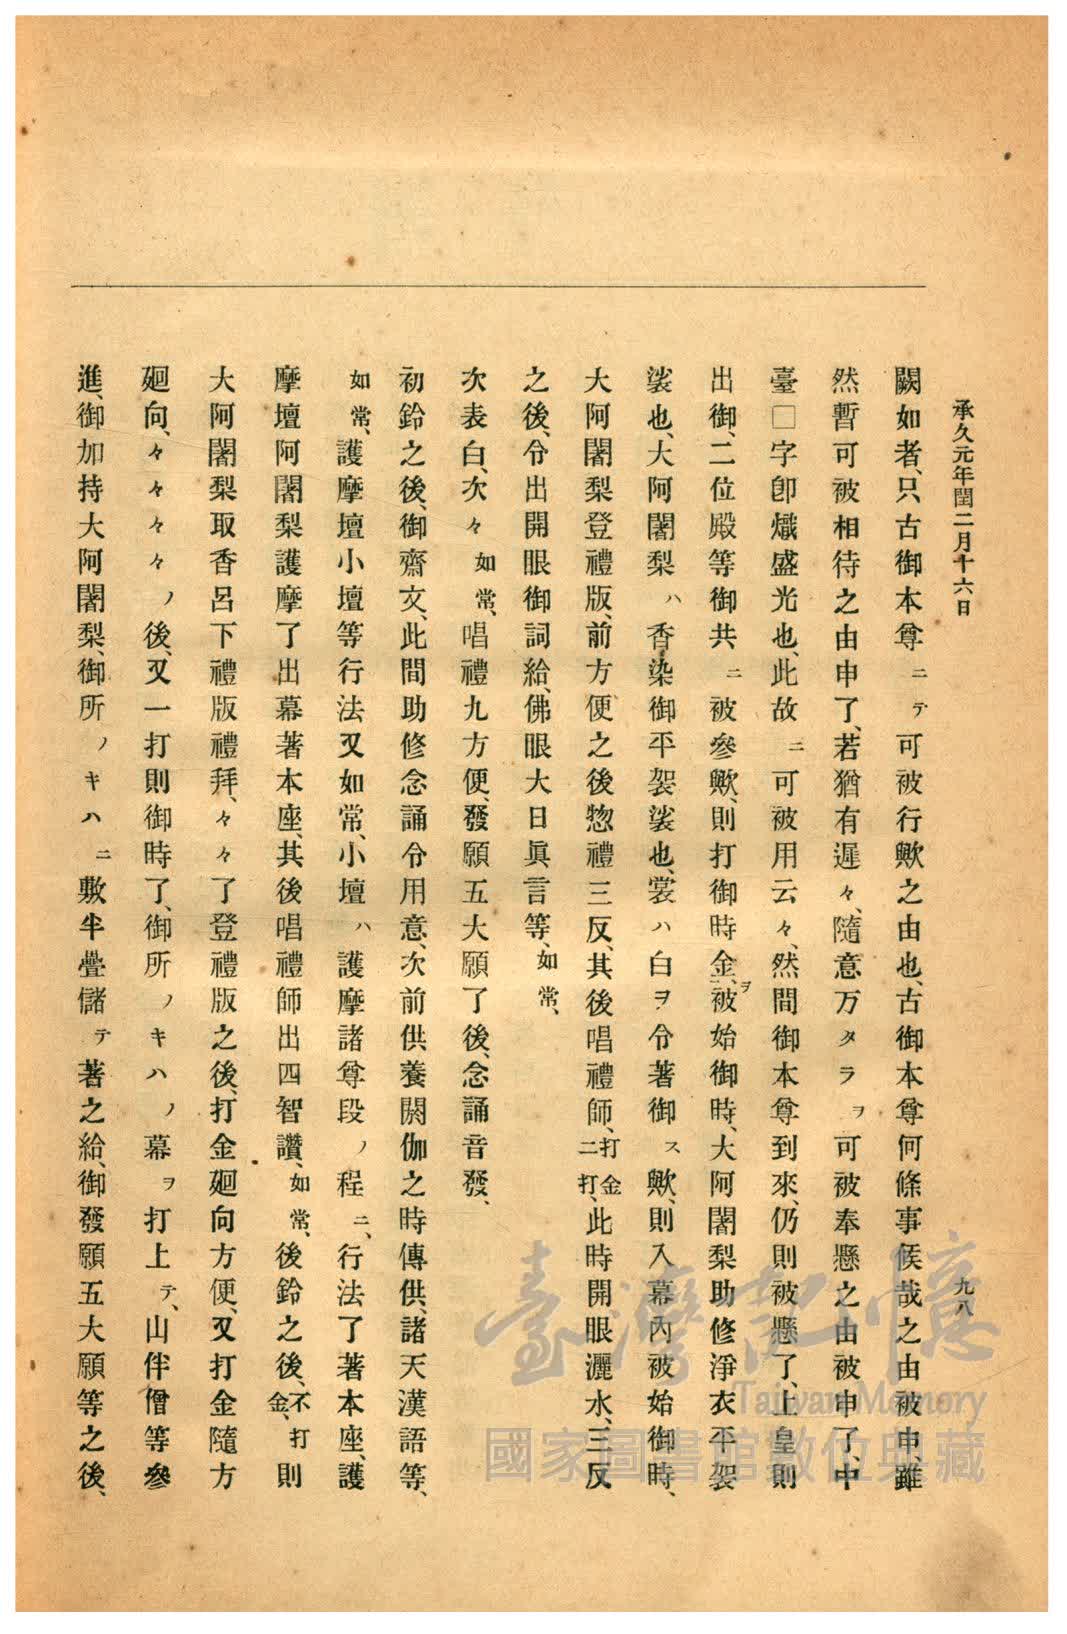 承久元年閏二月十六日
九八
闕如者、只古御本尊ニテ可被行歟之由也、古御本尊何條事候哉之由被申、雖
然暫可被相待之由申了、若猶有遲々、隨意万タラヲ可被奉懸之由被申了、中
臺□字卽熾盛光也、此故ニ可被用云々、然間御本尊到來、仍則被懸了、上皇則
出御、二位殿等御共ニ被參歟、則打御時金、ヲ被始御時、大阿闍梨助修淨衣平袈
裟也、大阿闍梨ハ香染御平袈裟也、裳ハ白ヲ令著御ス歟、則入幕內被始御時、
大阿闍梨登禮版、前方便之後惣禮三反、其後唱禮師、打金二打、此時開眼灑水、三反
之後、令出開眼御詞給、佛眼大日眞言等、如常、
次表白、次々如常、唱禮九方便、發願五大願了後、念誦音發、
初鈴之後、御齋文、此間助修念誦令用意、次前供養閼伽之時傳供、諸天漢語等、
如常、護摩壇小壇等行法又如常、小壇ハ護摩諸尊段ノ程ニ、行法了著本座、護
摩壇阿闍梨護摩了出幕著本座、其後唱禮師出四智讚、如常、後鈴之後、不打金、則
大阿闍梨取香呂下禮版禮拜、々々了登禮版之後、打金廻向方便、又打金隨方
廻向、々々々々ノ後、又一打則御時了、御所ノキハノ幕ヲ打上テ、山伴僧等參
進、御加持大阿闍梨、御所ノキハニ敷半疊儲テ著之給、御發願五大願等之後、
臺灣記憶
Taiwan Memory
國家圖書館數位典藏